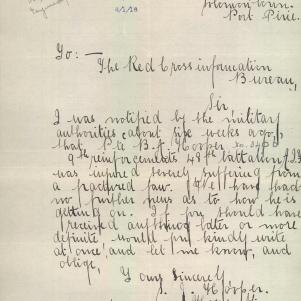 Solomontown.
Port Pirie.
To:—
The Red Cross information
Bureau,
Sir,
I was notified by the military
authorities, about six weeks ago,
that Pte B. J. Hooper
9th reinforcements 48th battalion
was injured severely suffering from
a fractured jaw. We have had
no further news as to how he is
getting on. If you should have
received anything later or more
definite would you kindly write
at once and let me know, and
oblige,
Yours Sincerely
S. J. Hooper.